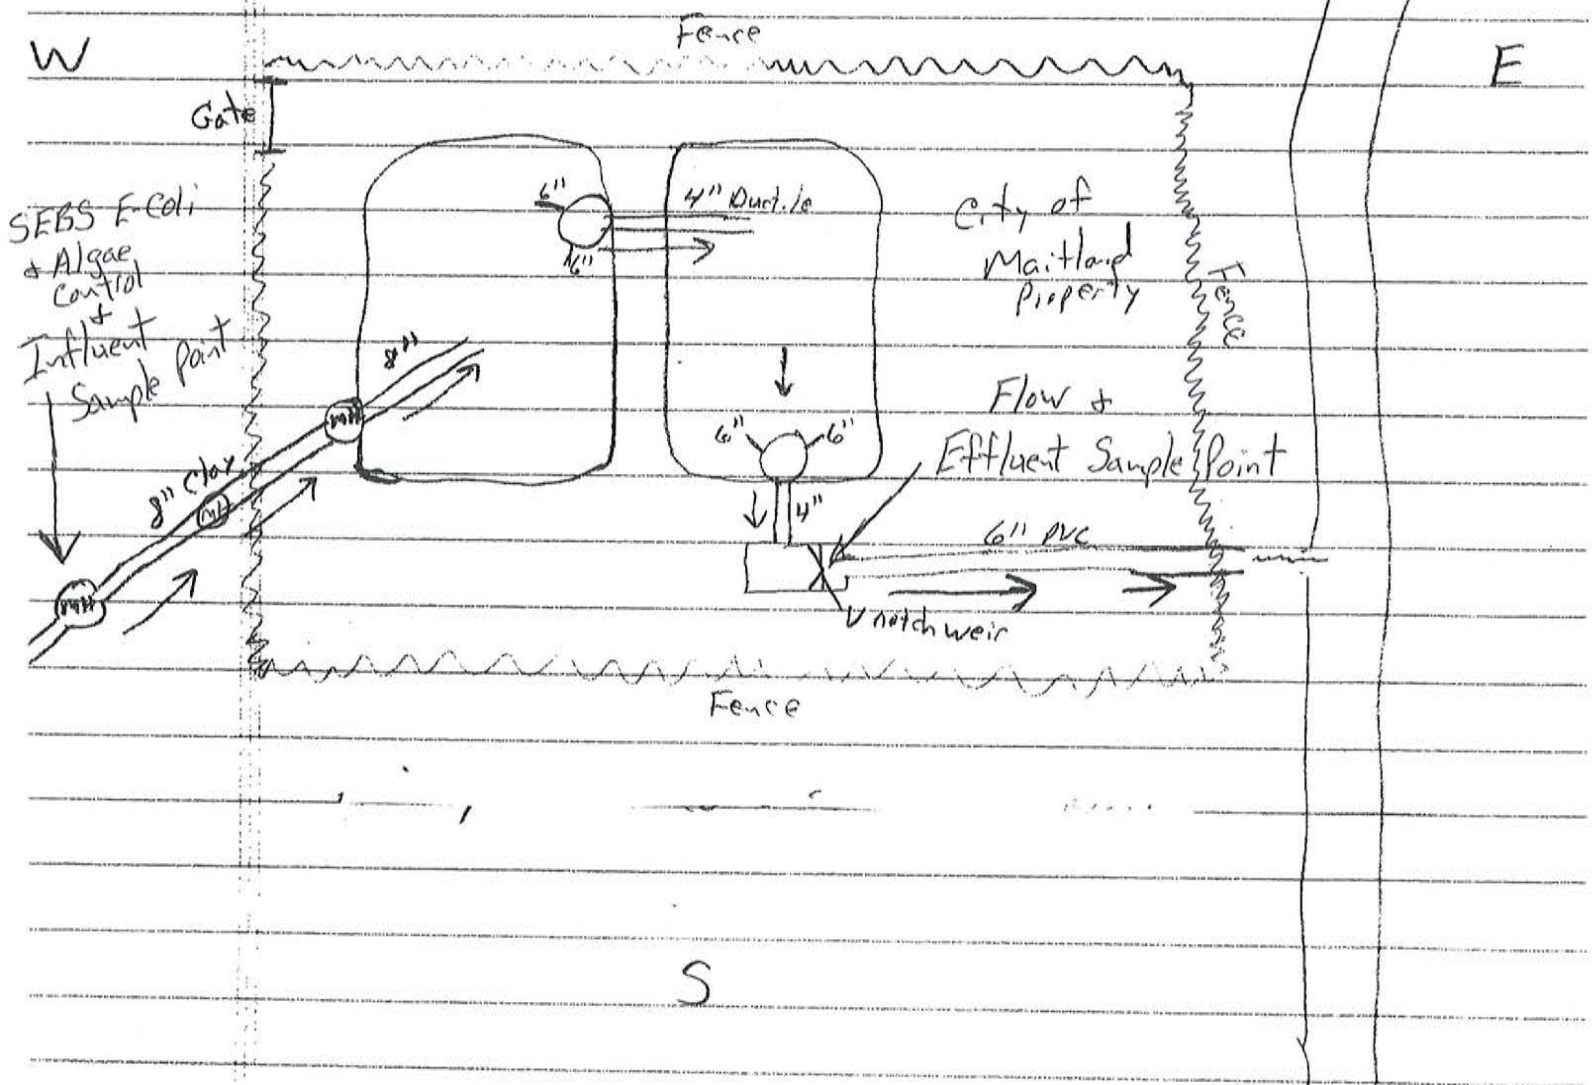 Fence
W
E
Gate
6"
4" Ductile
6"
SEBS E-Coli
& Algae
Control
&
Influent
Sample Point
City of
Maitland
Property
Fence
8"
MH
8" Clay
MH
MH
Flow &
Effluent Sample Point
6"
6"
4"
6" PVC
V notch weir
Fence
S